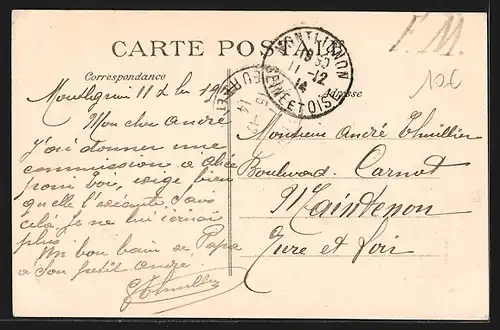 F. M.
CARTE POSTALE
MONTLIGNON
19 30
11 -12
14
SEINE ET OISE
10€
Correspondance
Adresse
Montlignon 11 d
Mon cher André
J'ai donner une
commission a Alice
pour toi, exige bien
qu'elle l'exécute, sans
celà je ne lui écrirai
plus.
Un bon bain de Papa
a son petit André.
GThuillier
Monsieur André Thuillier
Boulevard Carnot
Maintenon
Eure et Loir